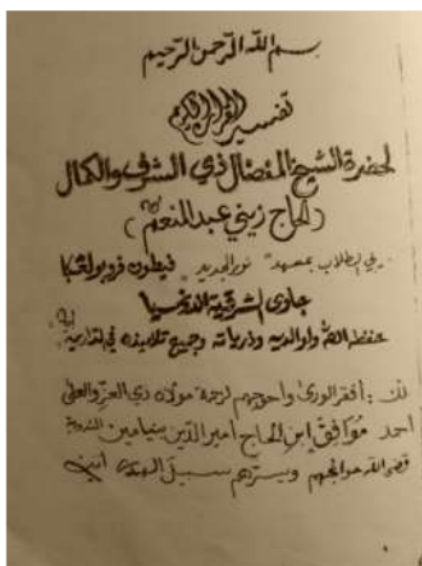 بسم الله الرحمن الرحيم
تفسير القرآن الكريم
لحضرة الشيخ المفضال ذي الشرف والكمال
(الحاج زيني عبد المنعم)
الطلاب بمعهد "نور الجديد" فيطون فروبولڠكا
جاوى الشرقية اندنسيا
حفظه الله ولوالديه وذرياته وجميع تلاميذه في الدارين
لك: أفقر الورى وأحوجهم لرحمة مولاه ذي العز والعلى
احمد موافق ابن الحاج امير الدين بنيامين
قضى الله حوائجهم ويسرهم سبيل الهدى امين